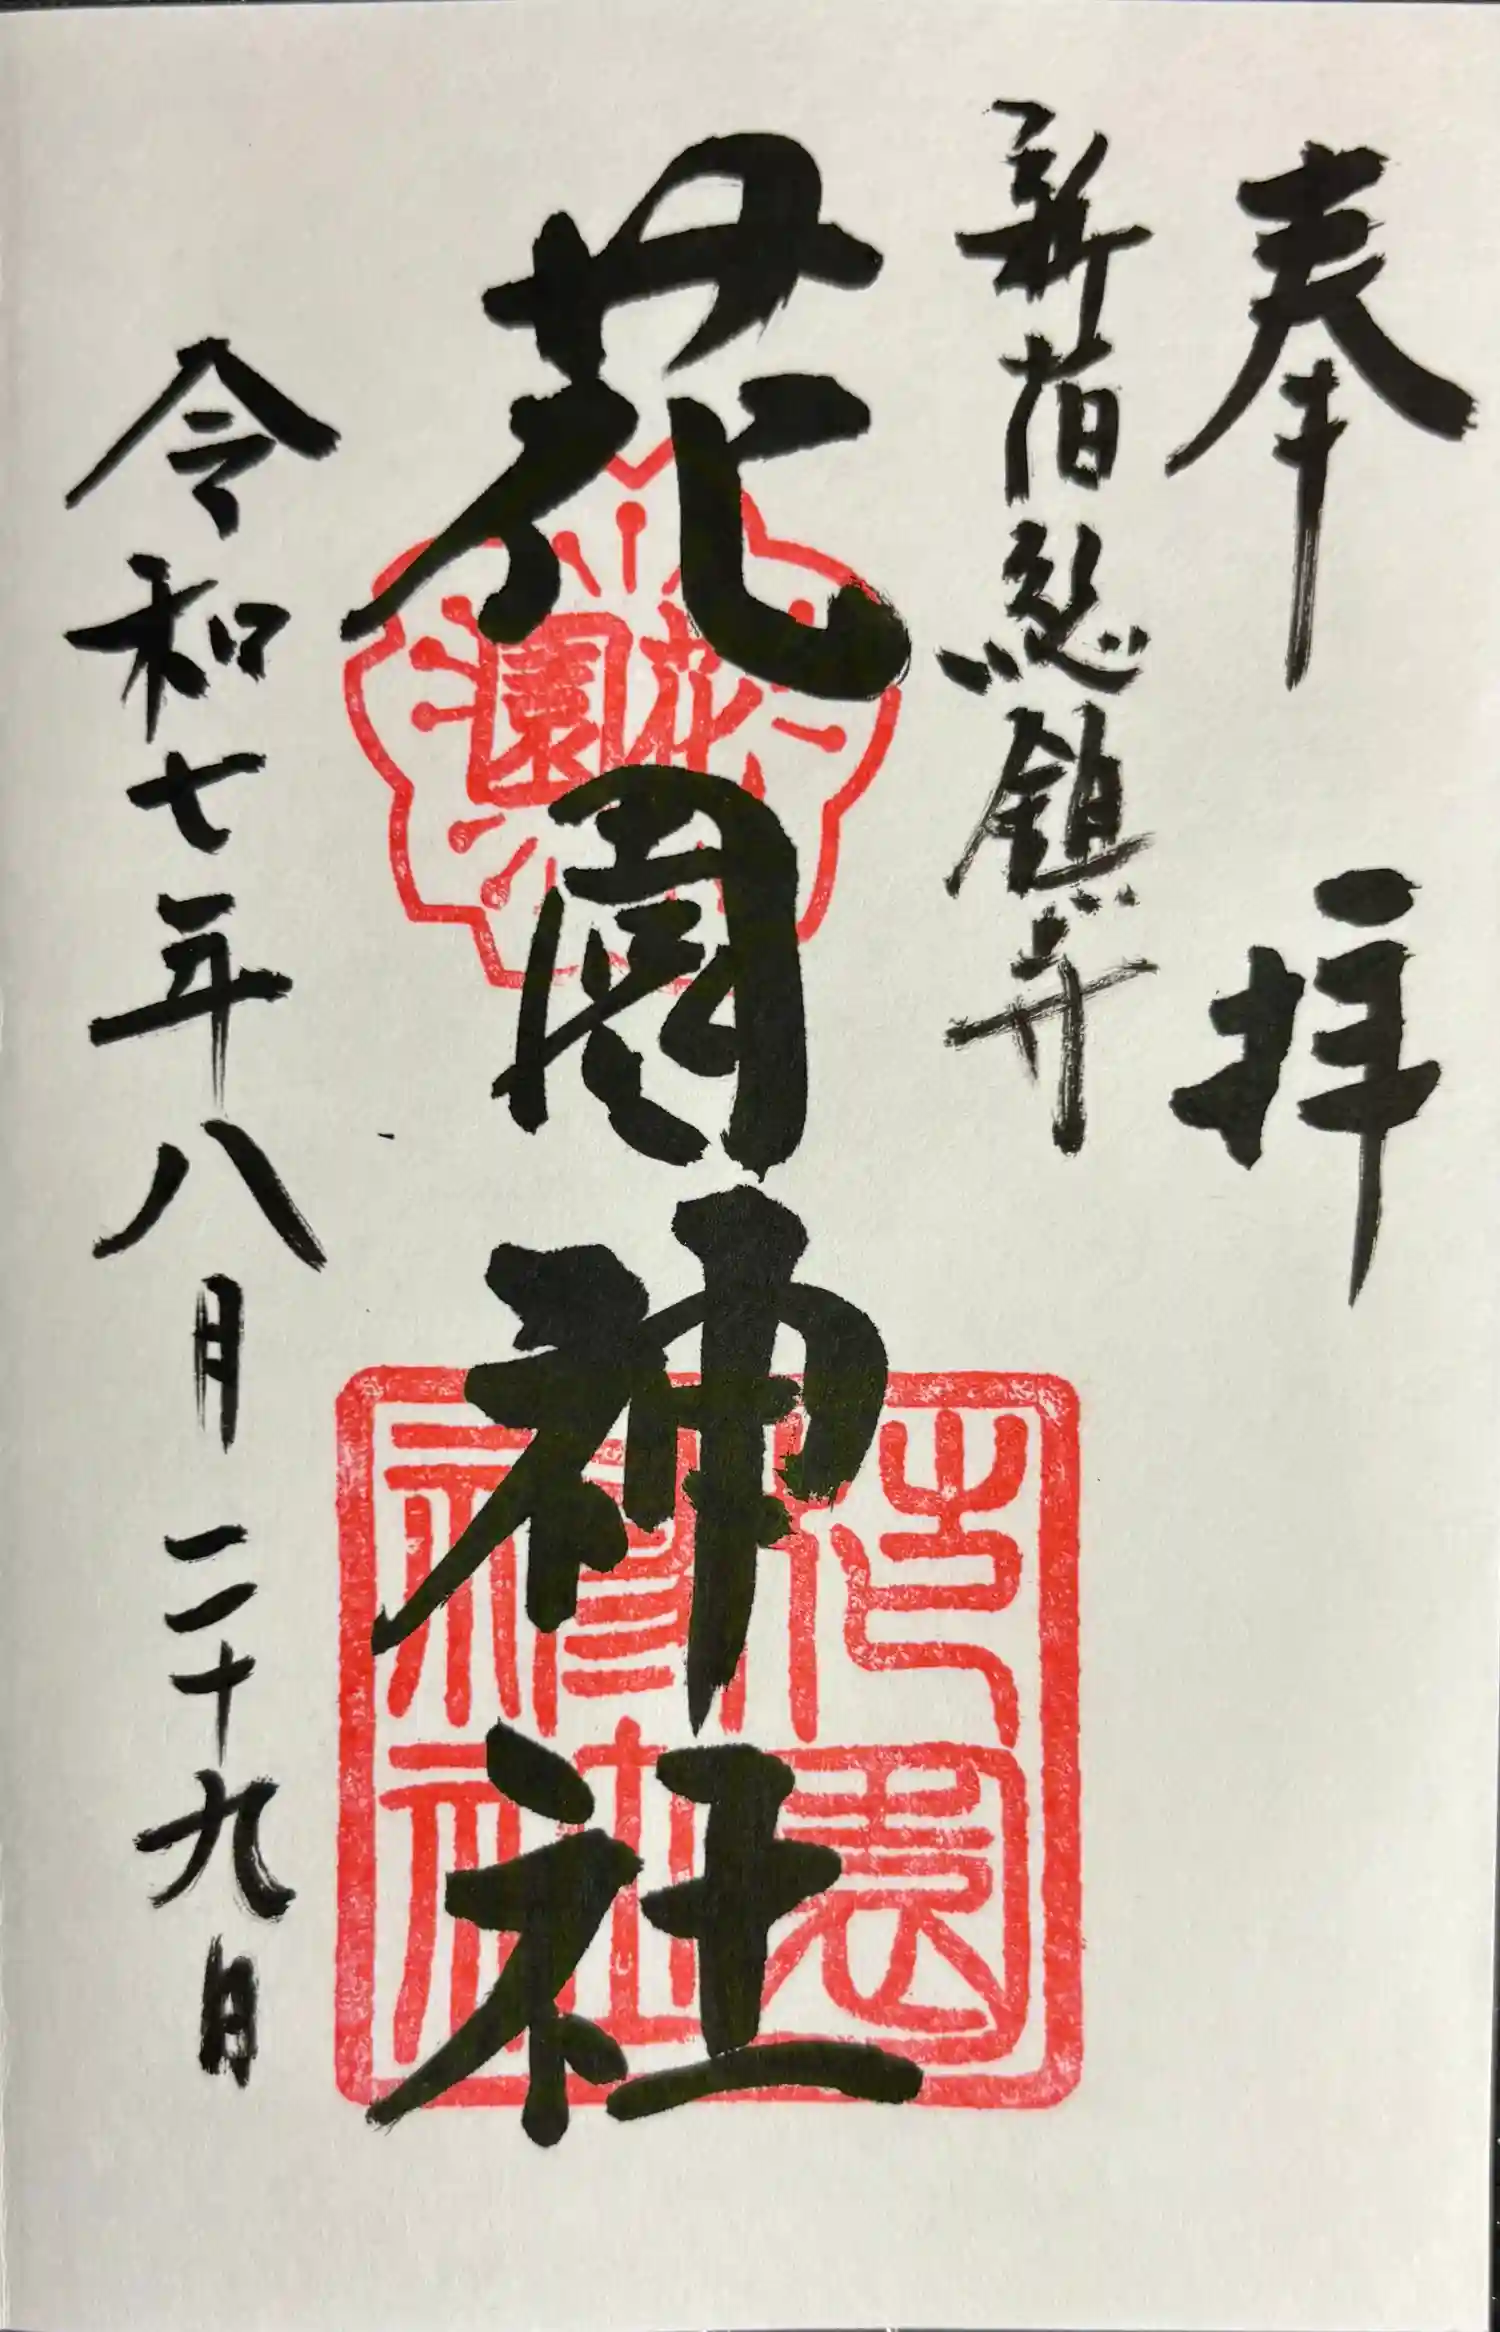 奉拝
新宿総鎮守
花園神社
花園
花園神社
令和七年八月二十九日